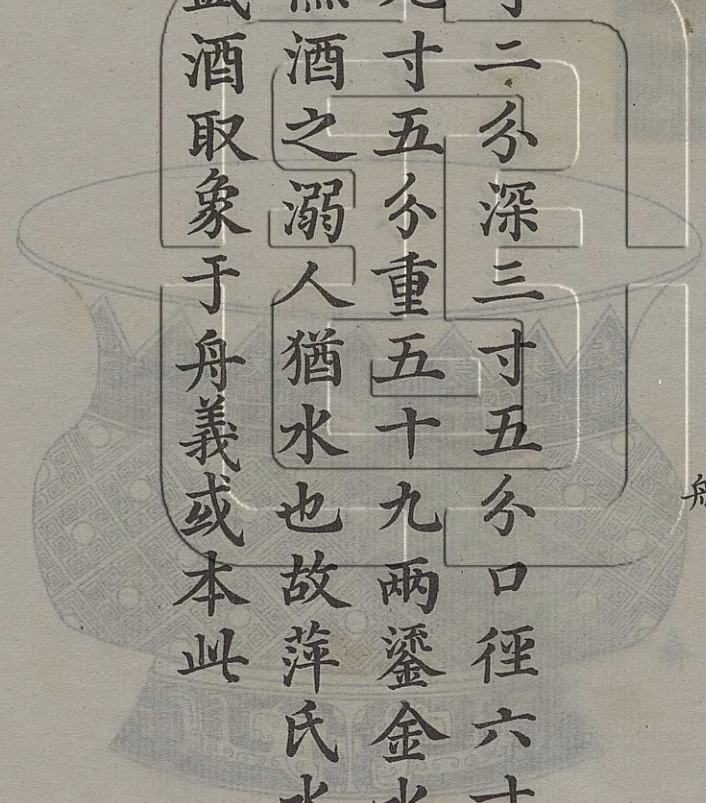 二分深三寸五分口徑六寸
寸五分重五十九兩鎏金
酒之溺人猶水也故萍氏
酒取象于舟義或本此